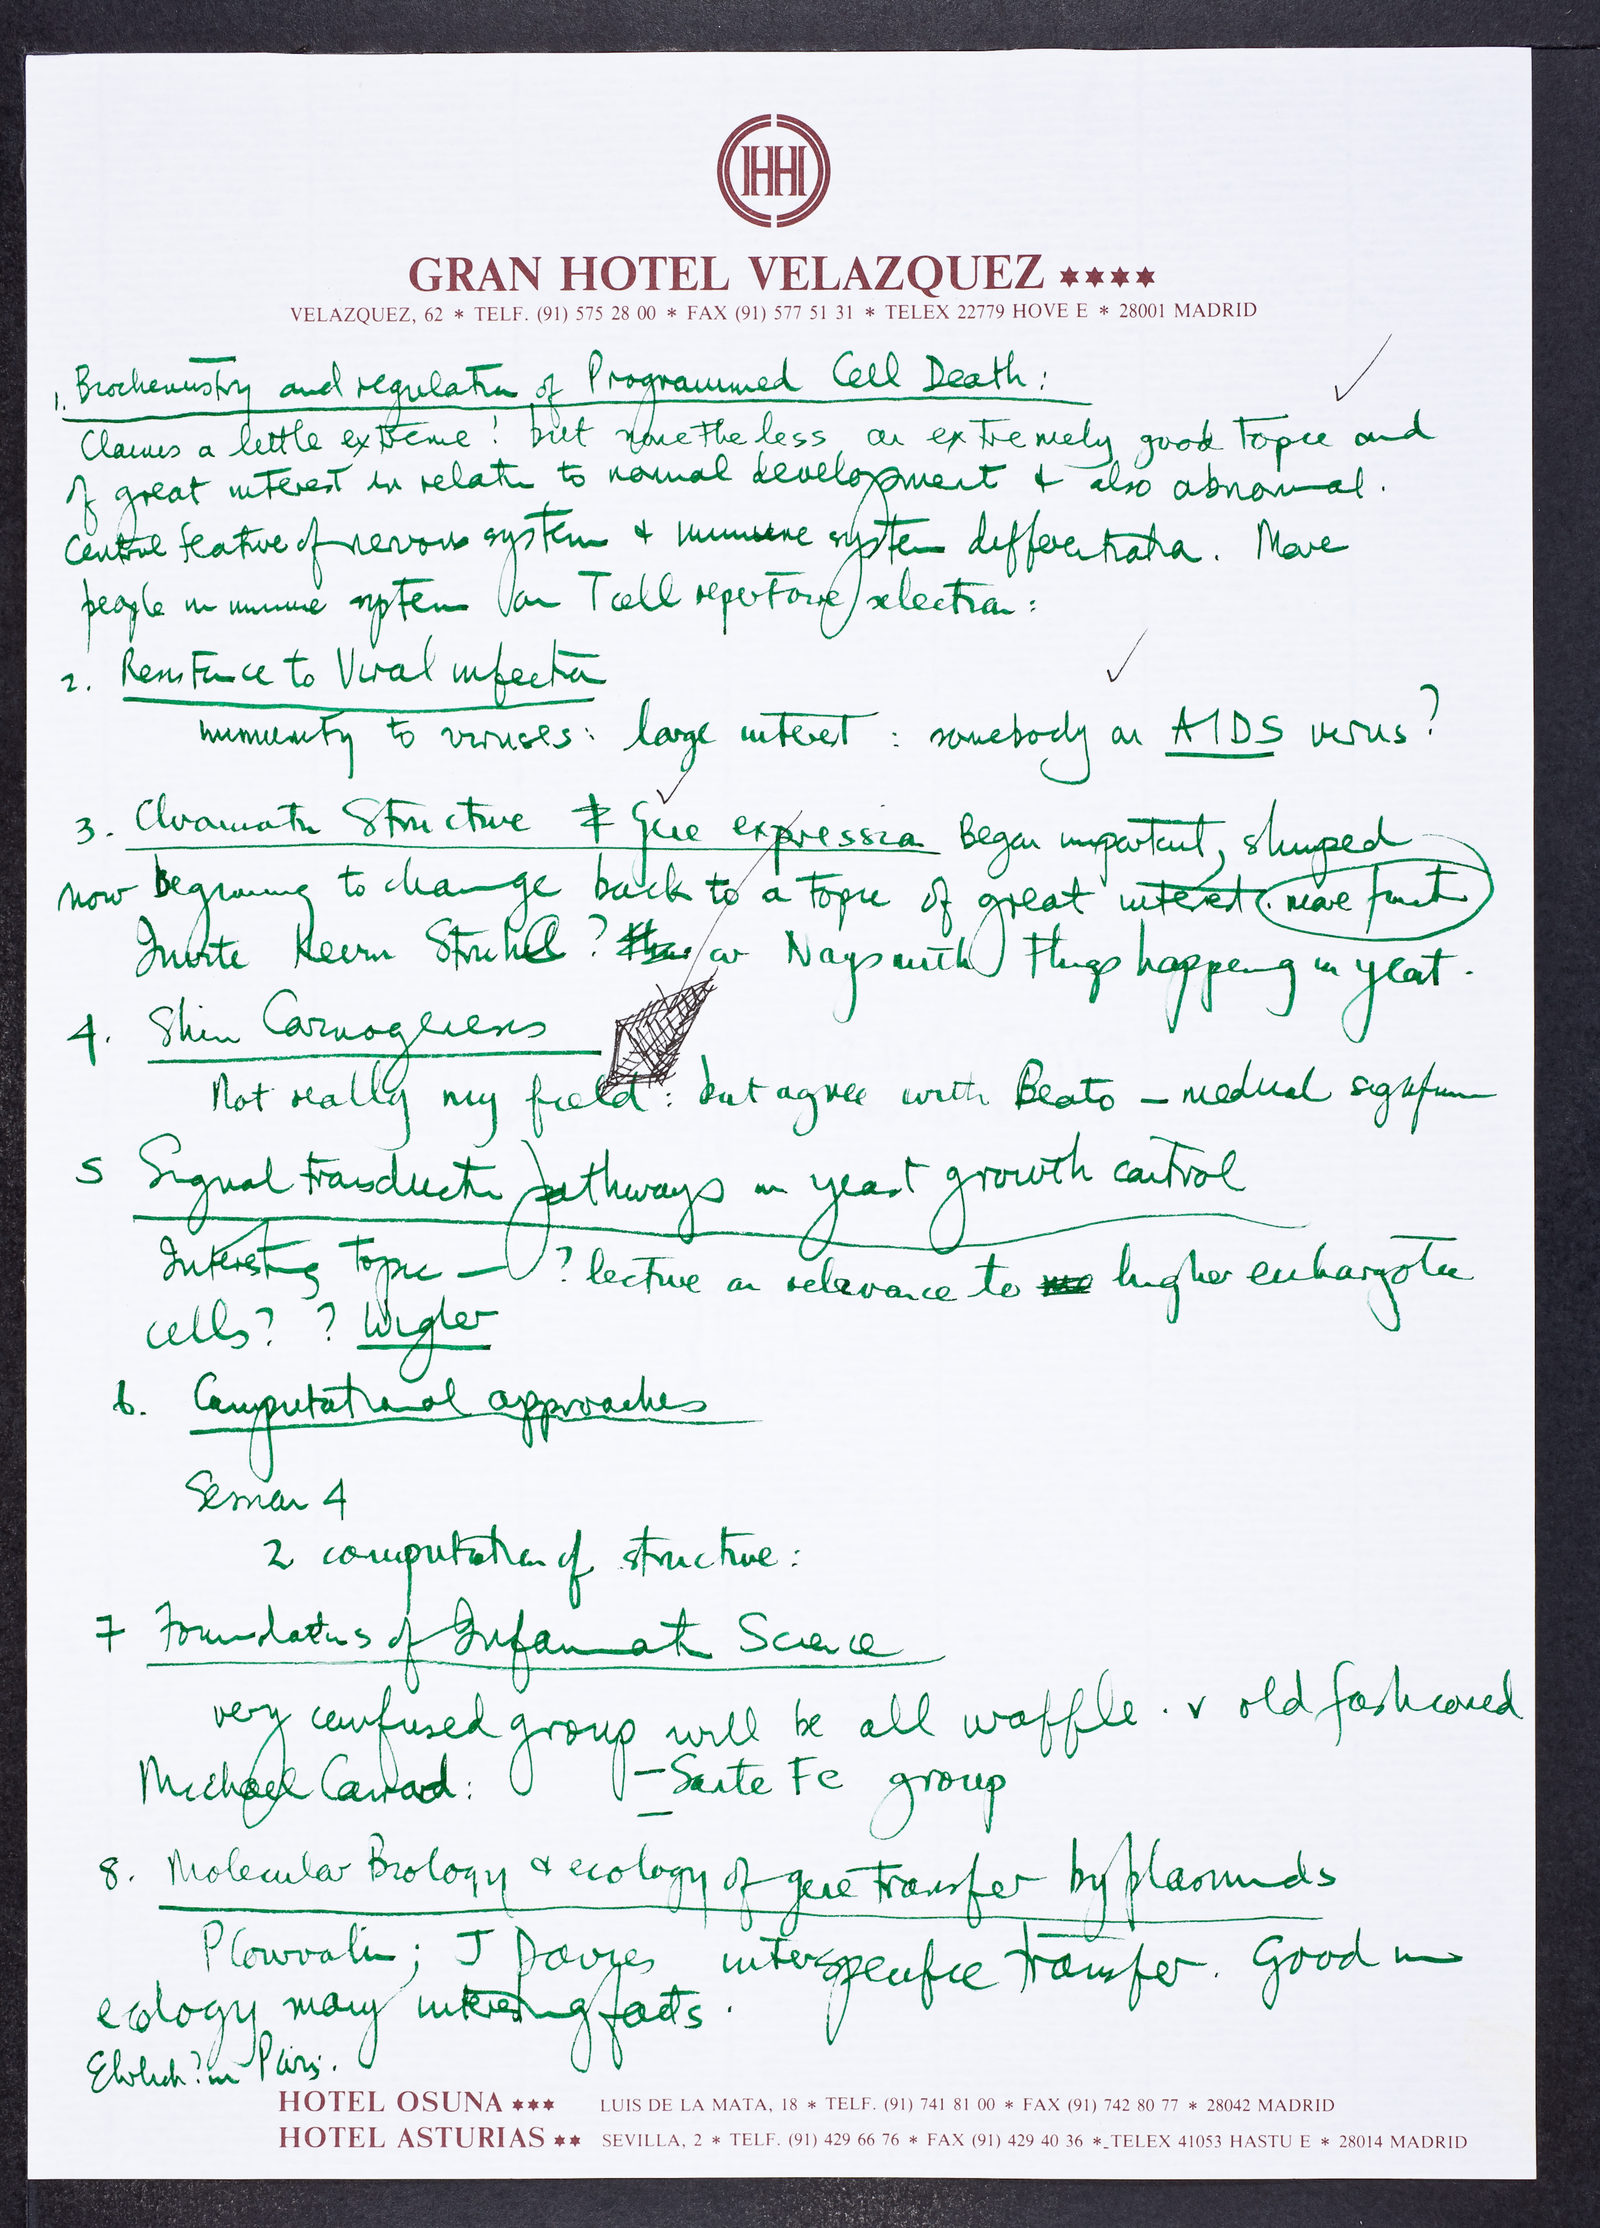 HHH
GRAN HOTEL VELAZQUEZ ★★★★
VELAZQUEZ, 62 * TELF. (91) 575 28 00 * FAX (91) 577 51 31 * TELEX 22779 HOVE E * 28001 MADRID
1. Biochemistry and regulation of Programmed Cell Death:
Claims a little extreme! but nonetheless an extremely good topic and
of great interest in relation to normal development & also abnormal.
central feature of nervous system & immune system differentiation. More
people in immune system on T cell repertoire selection:
2. Resistance to Viral infection
immunity to viruses: large interest: somebody on AIDS virus?
3. Chromatin Structure & Gene expression Began important, slumped
now beginning to change back to a topic of great interest. more function
Invite Kevin Struhl? or Naysmith things happening in yeast.
4. Skin Carcinogenesis
Not really my field: but agree with Beato – medical significance
5 Signal transduction pathways in yeast growth control
Interesting topic – ? lecture on relevance to higher eukaryotic
cells? ? Wigler
6. Computational approaches
Session 4
2 computation of structure:
7 Foundations of Information Science
very confused group will be all waffle. v old fashioned
Michael Conrad: – Sante Fe group
8. Molecular Biology & ecology of gene transfer by plasmids
P Courvalin; J Davies interspecific transfer. Good in
ecology many interesting facts.
Ehrlich? in Paris.
HOTEL OSUNA ★★★ LUIS DE LA MATA, 18 * TELF. (91) 741 81 00 * FAX (91) 742 80 77 * 28042 MADRID
HOTEL ASTURIAS ★★ SEVILLA, 2 * TELF. (91) 429 66 76 * FAX (91) 429 40 36 * TELEX 41053 HASTU E * 28014 MADRID